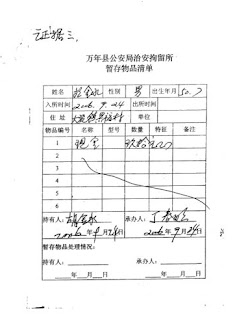 证据三、
万年县公安局治安拘留所
暂存物品清单
姓名 金水 性别 男 出生年月 50.7
入所时间 2006.9.24 出所时间
住址
物品编号 名称 型号 数量 特征 备注
1 现金 玖拾元
2
3
4
5
6
持有人: 金水 承办人: 丁
2006年9月24日 2006年9月24日
暂存物品处理情况:
持有人: 承办人:
年 月 日 年 月 日